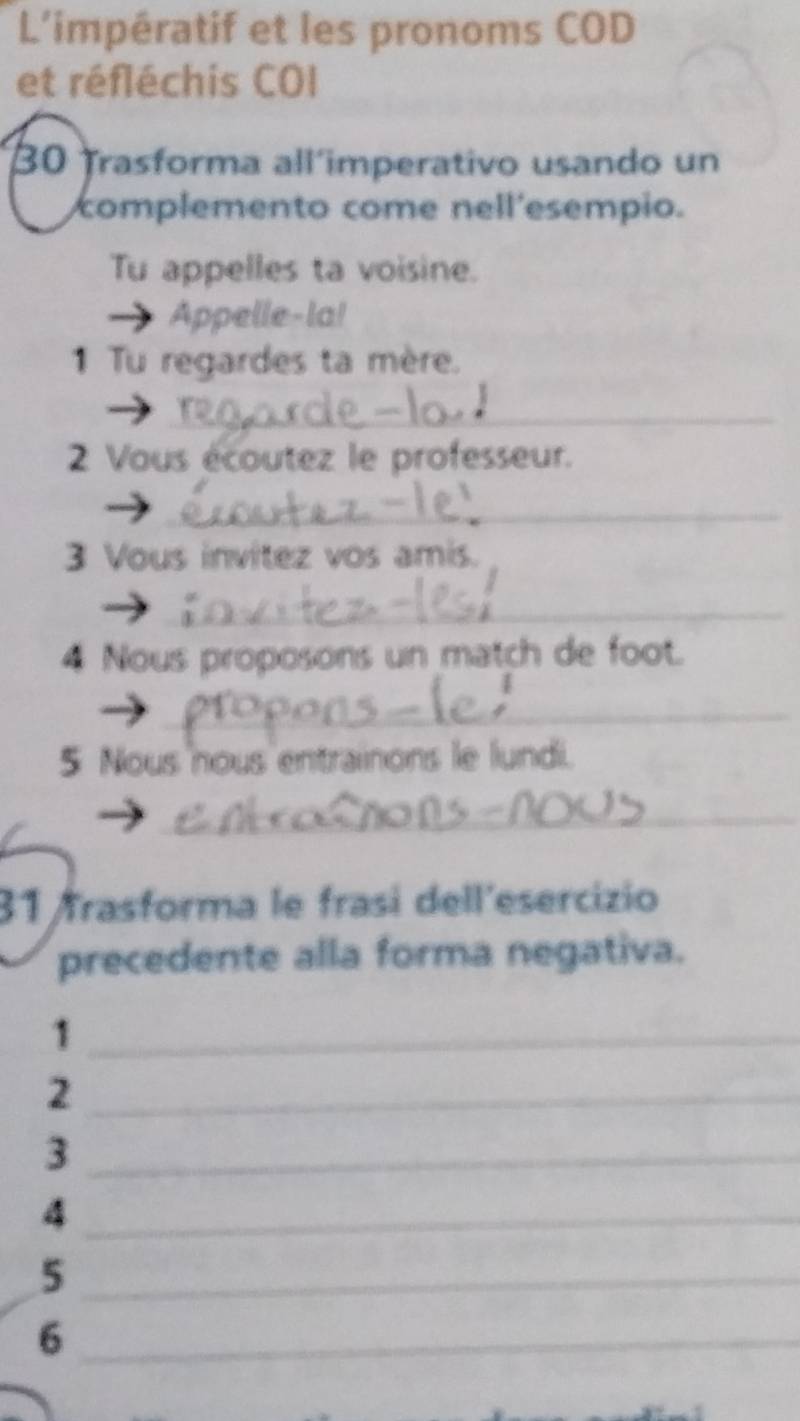 L'impératif et les pronoms COD
et réfléchis COI
30 Trasforma all'imperativo usando un
complemento come nell'esempio.
Tu appelles ta voisine.
→ Appelle-la!
1 Tu regardes ta mère.
→ regarde-la!
2 Vous écoutez le professeur.
→ écoutez-le!
3 Vous invitez vos amis.
→ invitez-les!
4 Nous proposons un match de foot.
→ propons-le!
5 Nous nous entraînons le lundi.
→ entraînons-nous
31 Trasforma le frasi dell'esercizio
precedente alla forma negativa.
1
2
3
4
5
6